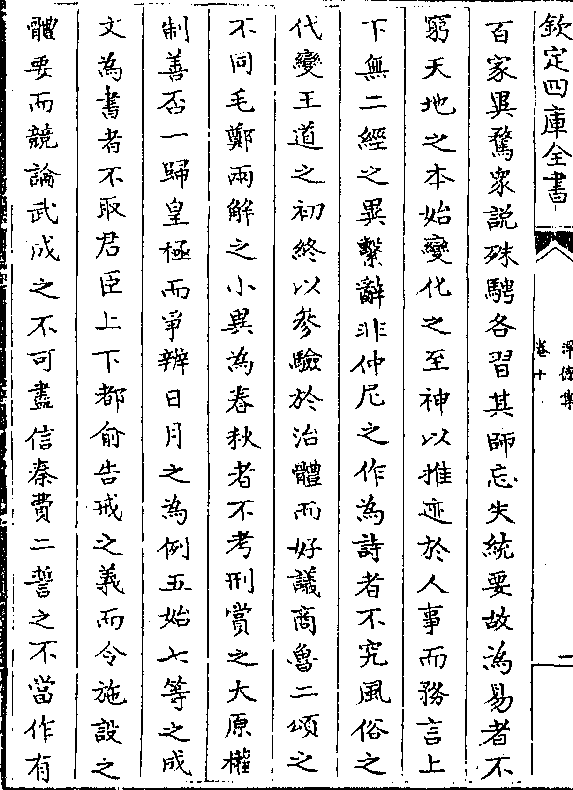 欽定四庫全書
淨德集
卷十
一
百家異鶩衆說殊騁各習其師忘失統要故為易者不
窮天地之本始變化之至神以推迹於人事而務言上
下無二經之異繫辭非仲尼之作為詩者不究風俗之
代變王道之初終以參驗於治體而好議商魯二頌之
不同毛鄭兩解之小異為春秋者不考刑賞之大原權
制善否一歸皇極而爭辨日月之為例五始七等之成
文為書者不取君臣上下都俞告戒之義而令施設之
體要而競論武成之不可盡信秦費二誓之不當作有